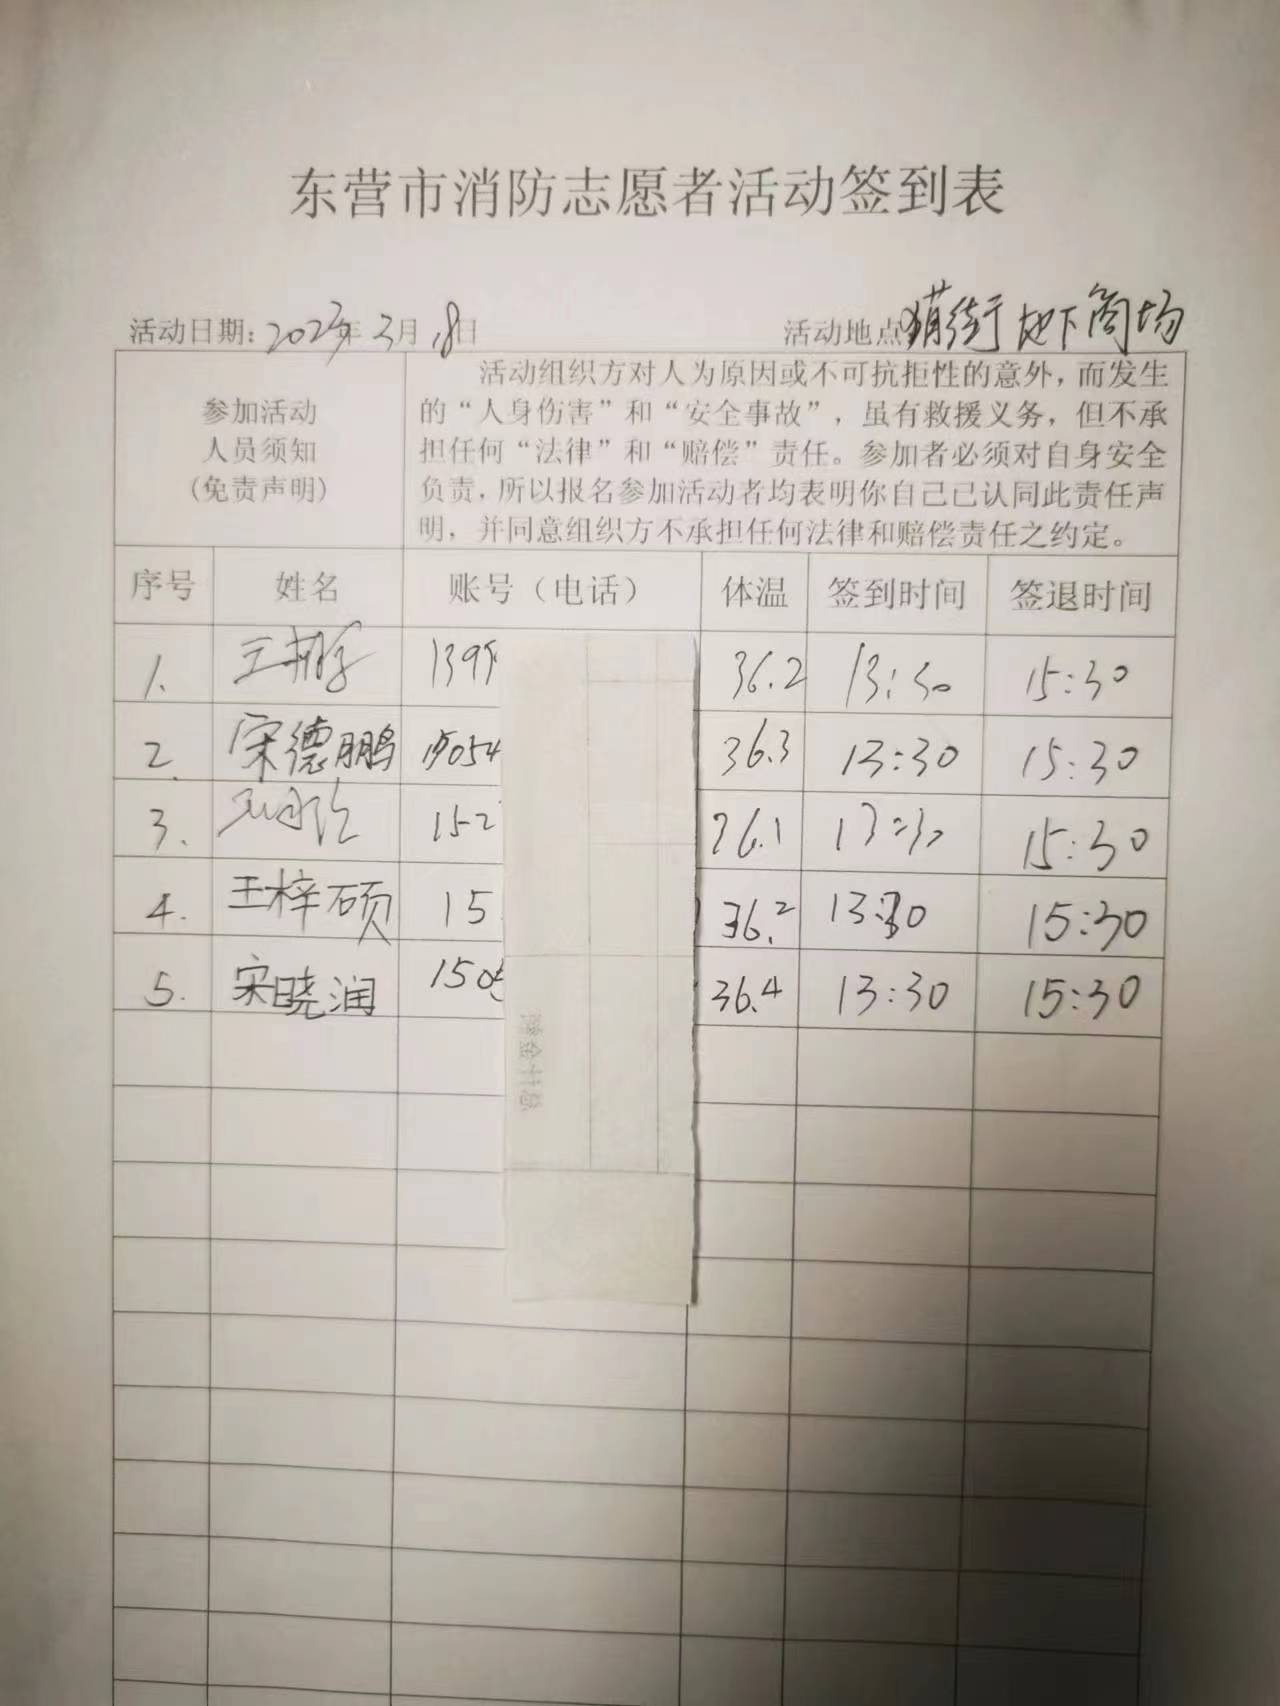 东营市消防志愿者活动签到表
活动日期：2023年3月18日 活动地点 猫街地下商场
参加活动
人员须知
(免责声明)
活动组织方对人为原因或不可抗拒性的意外，而发生
的“人身伤害”和“安全事故”，虽有救援义务，但不承
担任何“法律”和“赔偿”责任。参加者必须对自身安全
负责，所以报名参加活动者均表明你自己已认同此责任声
明，并同意组织方不承担任何法律和赔偿责任之约定。
序号 姓名 账号（电话） 体温 签到时间 签退时间
1. 139 36.2 13:30 15:30
2. 宋德鹏 15054 36.3 13:30 15:30
3. 152 36.1 13:30 15:30
4. 王梓硕 15 36.2 13:30 15:30
5. 宋晓润 150 36.4 13:30 15:30